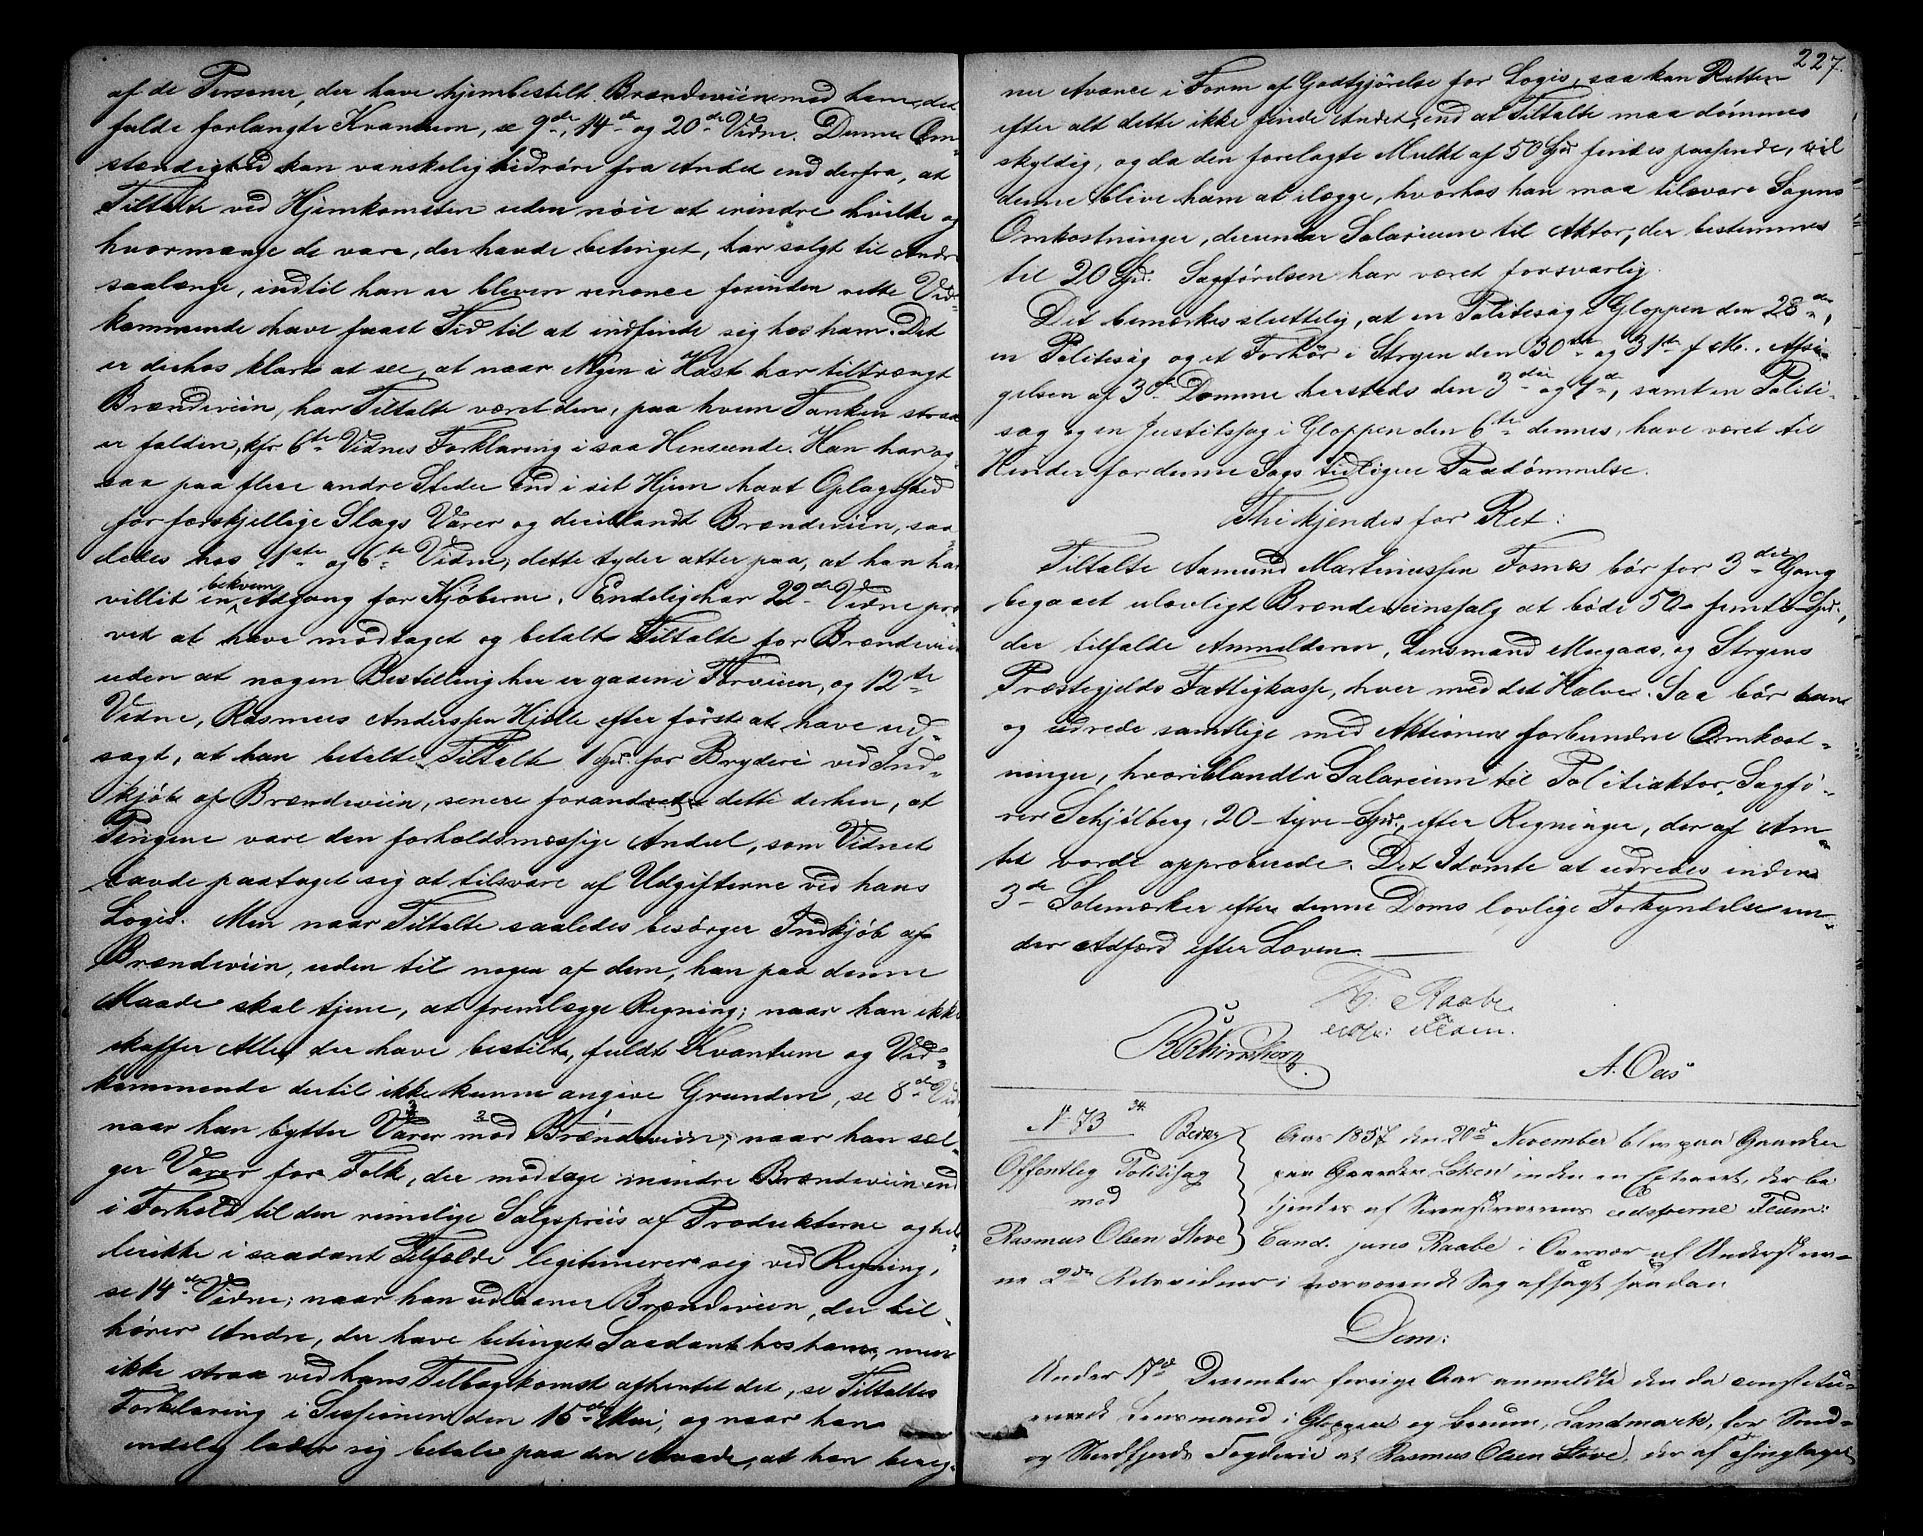 af de Personer, der have hjembestilt Brændeviin med ham, det
fulde forlangte Kvantum, se 9de, 14de og 20de Vidne. Denne Om-
stændighed kan vanskelig hidrøre fra Andet end derfra, at
Tiltalte ved Hjemkomsten uden nøie at erindre hvilke og
hvormange de vare, der havde betinget, har solgt til Andre
saalænge, indtil han er bleven renonce forinden rette Ved-
kommende have faaet Tid til at indfinde sig hos ham. Det
er derhos klart at see, at naar Nogen i Hast har tiltrængt
Brændeviin, har Tiltalte været den, paa hvem Tanken strax
er falden, kfr 6te Vidnes Forklaring i saa Henseende. Han har og-
saa paa flere andre Steder end i sit Hjem havt Oplagssted
for forskjellige Slags Varer og deriblandt Brændeviin, saa-
ledes hos 1ste og 6te Vidne; dette tyder atter paa, at han har
villet en bekvem Adgang for Kjøberne. Endelig har 22de Vidne prø-
vet at have modtaget og betalt Tiltalte for Brændeviin
uden at nogen Bestilling her er gaaen i Forveien, og 12te
Vidne, Rasmus Anderssen Hjelle efter først at have ud-
sagt, at han betalte Tiltalte 1 Spd. for Bryderi ved Ind-
kjøb af Brændeviin, senere forandret dette derhen, at
Pengene vare den forholdsmæssige Andeel, som Vidnet
havde paataget sig at tilsvare af Udgifterne ved hans
Logis. Men naar Tiltalte saaledes besørger Indkjøb af
Brændeviin, uden til nogen af dem, han paa denne
Maade skal tjene, at fremlægge Regning; naar han ikke
skaffer Alle, der have bestilt, fuldt Kvantum og Ved-
kommende dertil ikke kunne angive Grunden, se 8de Vidne
naar han bytter Varer mod Brændeviin; naar han sæl-
ger Varer for Folk, der modtage mindre Brændeviin end
i Forhold til den rimelige Salgspriis af Produkterne og hel-
ler ikke i saadant Tilfælde legitimerer sig ved Regning,
se 14de Vidne; naar han udlaaner Brændeviin, der til-
hører Andre, der have betinget Saadant hos ham, men
ikke strax ved hans Tilbagekomst afhentet det, se Tiltaltes
Forklaring i Sessionen den 15de Mai, og naar han
endelig lader sig betale paa den Maade, at han bereg-
227.
ner Avance i Form af Godtgjørelse for Logis, saa kan Retten
efter alt dette ikke finde Andet, end at Tiltalte maa dømmes
skyldig, og da den forelagte Mulkt af 50 Spd. findes passende, vil
denne blive ham at ilægge, hvorhos han maa tilsvare Sagens
Omkostninger, derunder Salarium til Aktor, der bestemmes
til 20 Spd. Sagførelsen har været forsvarlig.
Det bemærkes sluttelig, at en Politisag i Gloppen den 28de,
en Politisag og et Forhør i Stryen den 30te og 31te f. M., Afsi-
gelsen af 3de Domme hersteds den 3die og 4de, samt en Politi-
sag og en Justitssag i Gloppen den 6te dennes, have været til
Hinder for denne Sags tidligere Paadømmelse.
Thi kjendes for Ret:
Tiltalte Aamund Martinussen Fosnes bør for 3die Gang
begaaet ulovligt Brændeviinssalg at bøde 50 femti Spd.,
der tilfalde Anmelderen, Lensmand Meegaas, og Stryens
Præstegjelds Fattigkasse, hver med det Halve. Saa bør han
og udrede samtlige med Aktionen forbundne Omkost-
ninger, hvoriblandt i Salarium til Politiaktor, Sagfø-
rer Schjølberg, 20 tyve Spd., efter Regninger, der af Am-
tet vorde approberede. Det Idømte at udredes inden
3de Solemærker efter denne Doms lovlige Forkyndelse un-
der Adfærd efter Loven.
Raabe
A. Aas
N 73 34. Bevs
Offentlig Politisag
mod
Rasmus Olsen Støve
Aar 1857 den 20de November blev paa Gaarden
paa Gaarden Leken inden en Extraret, der be-
tjentes af Sorenskriverens Edsvorne Fuldm:
Cand. juris Raabe i Overvær af Underskrev-
ne 2de Retsvidner i nærværende Sag afsagt saadan
Dom:
Under 17de December forrige Aar anmeldte den da constitu-
erede Lensmand i Gloppen og Breum, Landmark, for Sønd-
og Nordfjords Fogderie at Rasmus Olsen Støve, der af Thinglaget